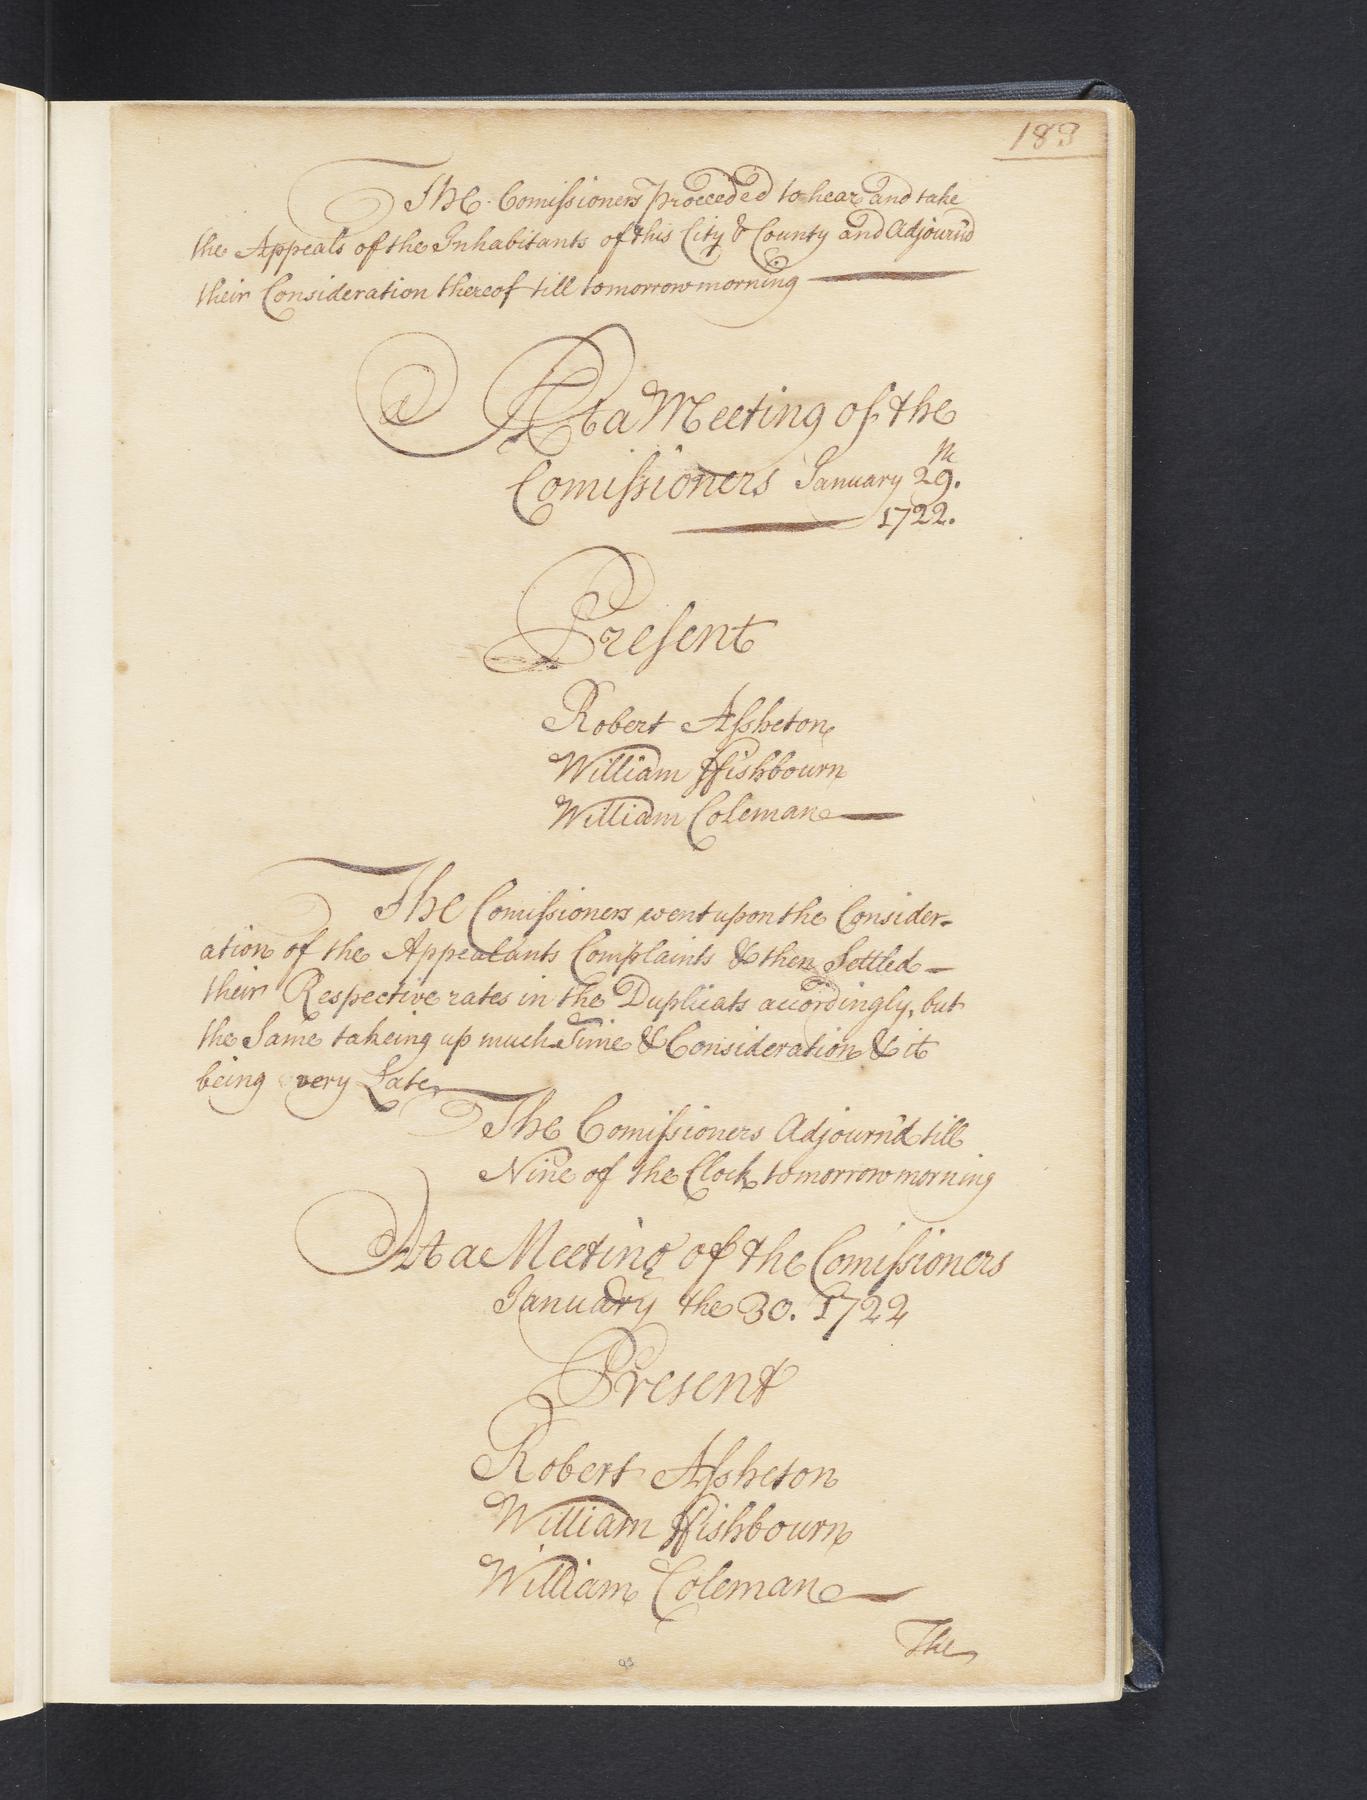 183
The Comissioners proceeded to hear and take
the Appeals of the Inhabitants of this City & County and Adjourn'd
their Consideration thereof till tomorrow morning
At a Meeting of the
Comissioners January 29.th
1722.
Present
Robert Assheton
William Ffishbourn
William Coleman
The Comissioners went upon the Consider-
ation of the Appealants Complaints & then Settled
their Respective rates in the Duplicats accordingly, but
the Same takeing up much Time & Consideration & it
being very Late
The Comissioners Adjourn'd till
Nine of the Clock tomorrow morning
At a Meeting of the Comissioners
January the 30. 1722
Present
Robert Assheton
William Ffishbourn
William Coleman
The